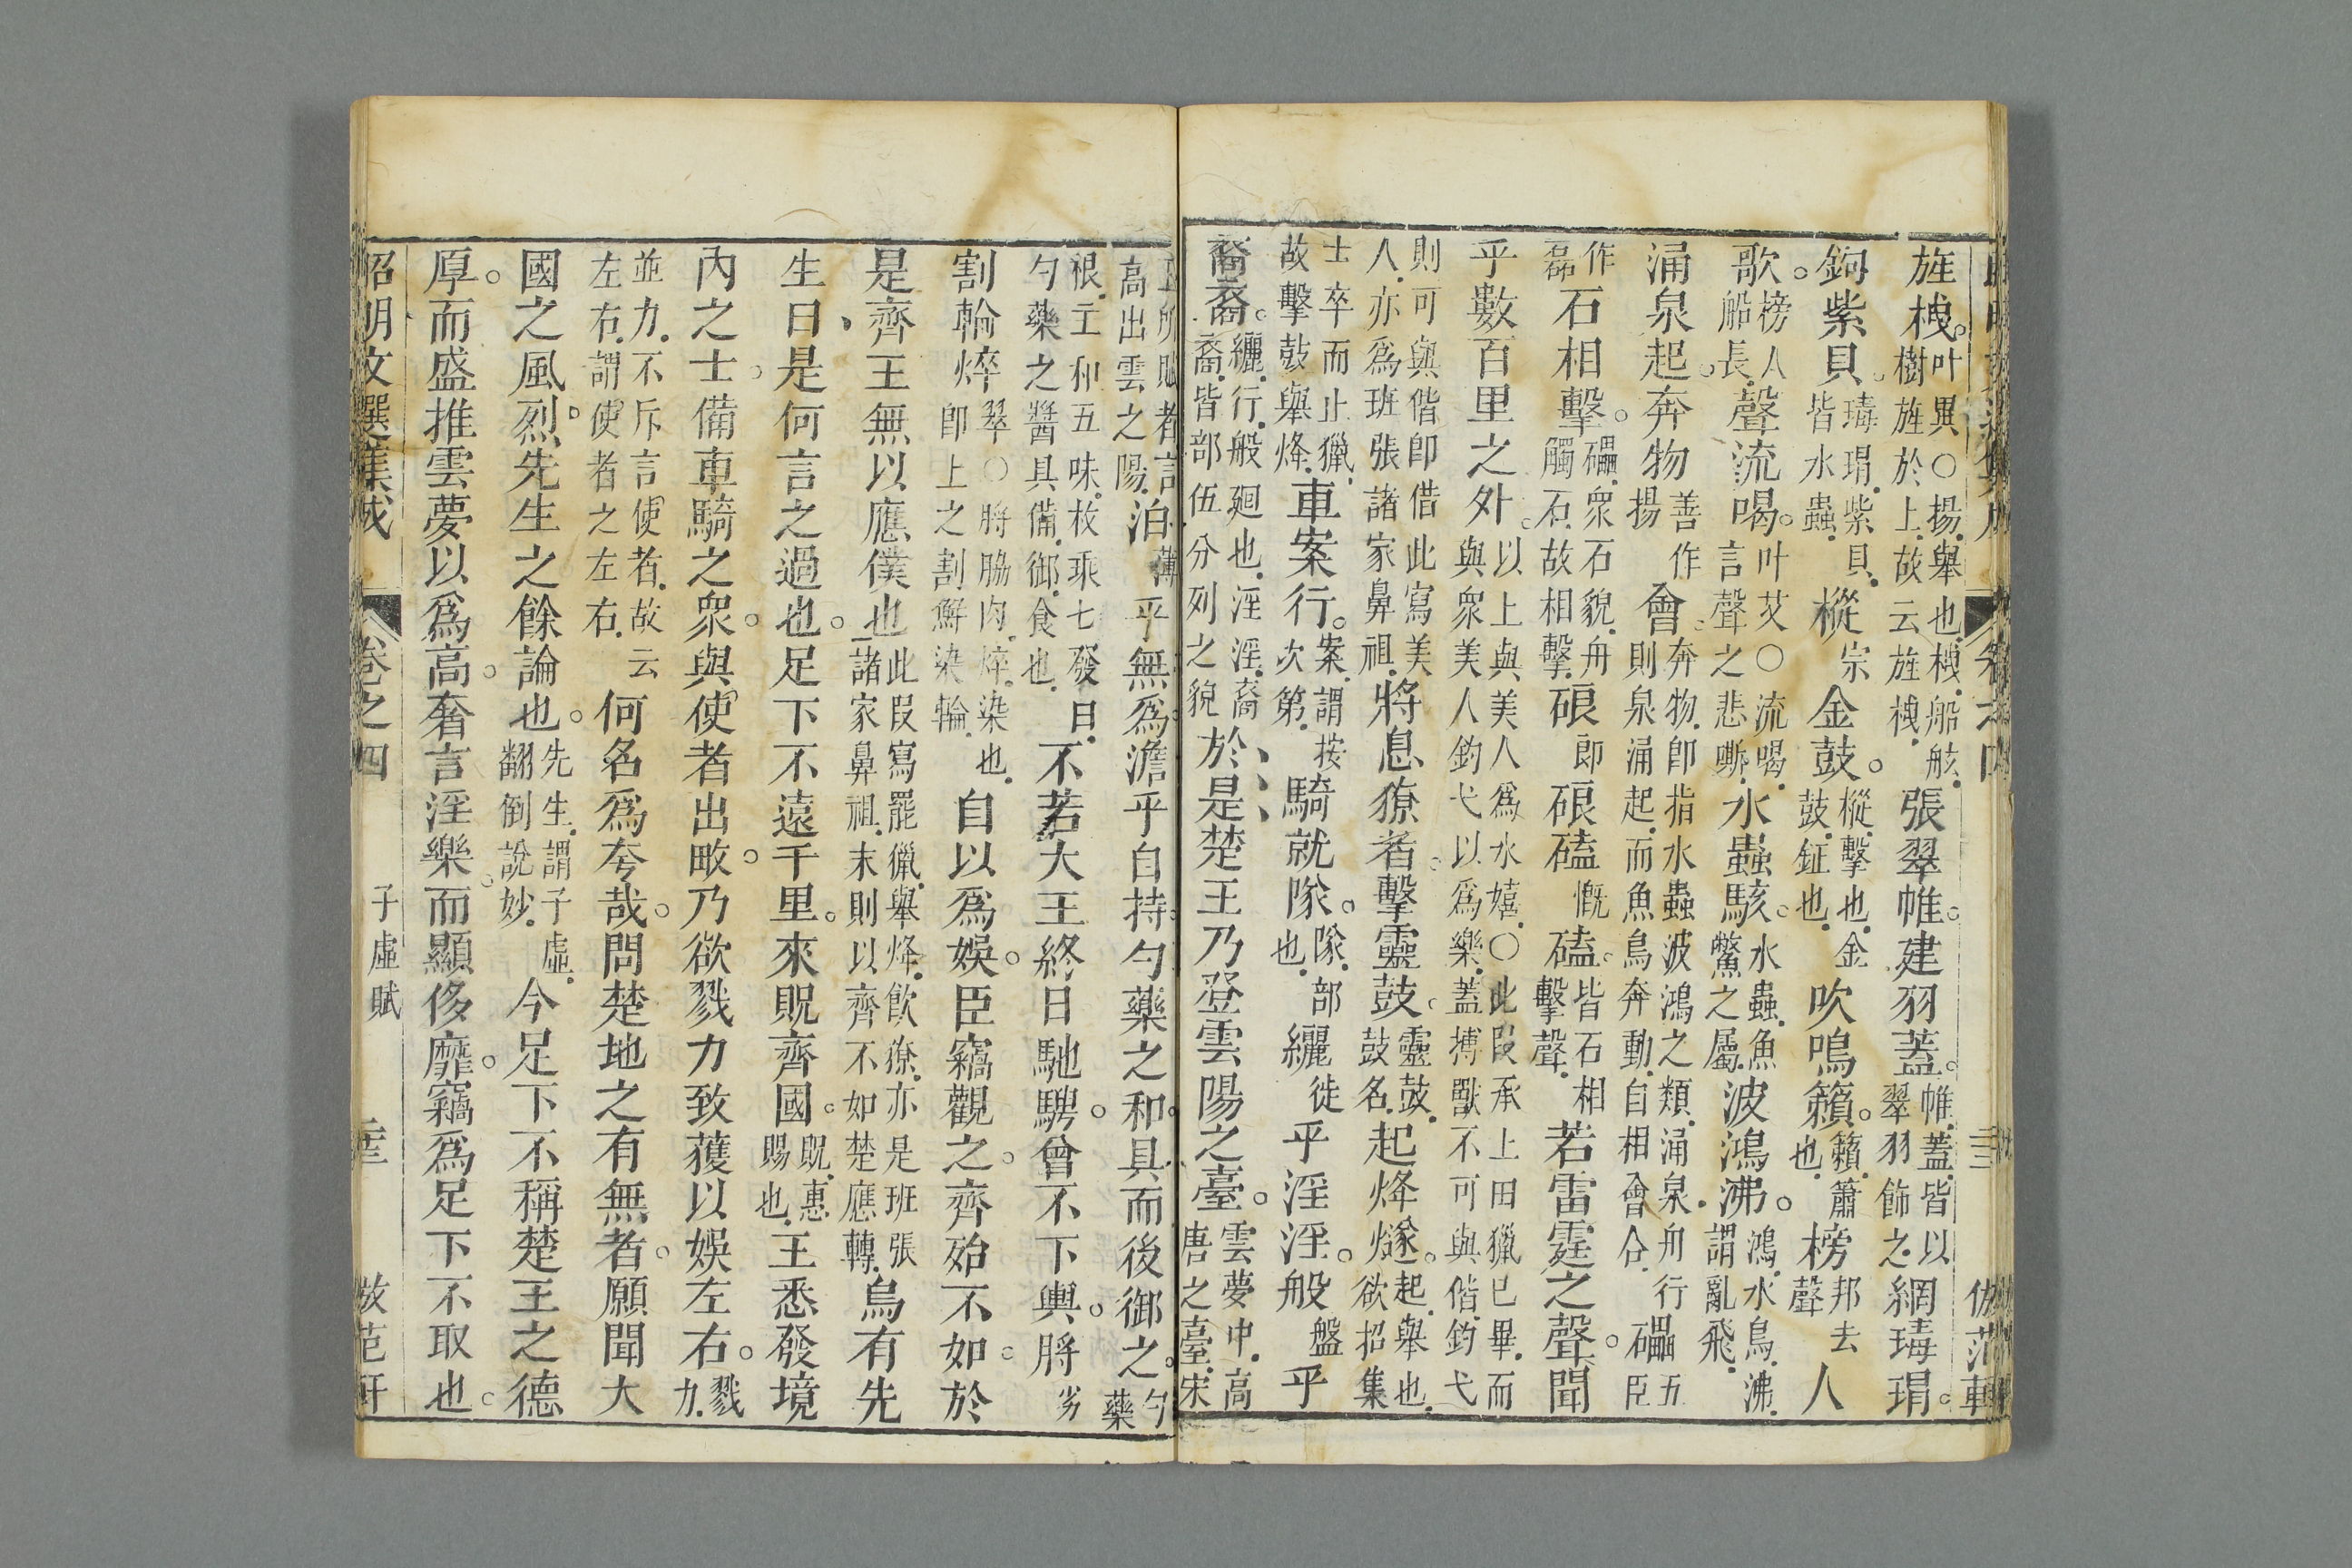 旌栧。叶異○揚，舉也。栧，船舷。樹旌於上，故云旌栧。張翠帷。建羽葢。帷葢，皆以翠羽飾之。網瑇瑁。
鉤紫貝。瑇瑁，紫貝，皆水蟲。樅宗金鼓。樅，擊也。金鼓，鉦也。吹鳴籟。籟，簫也。榜邦去聲人
歌。榜人，船長。聲流喝。叶艾○流喝，言聲之悲嘶。水蟲駭。水蟲，魚鱉之屬。波鴻沸。鴻，水鳥。沸，謂亂飛。
涌泉起。奔物善作揚會。奔物，卽指水蟲波鴻之類。涌泉，舟行則泉涌起，而魚鳥奔動，自相會合。礧五臣
作磊石相擊。礧，衆石貌。舟觸石，故相擊。硠郎硠磕慨磕。皆石相擊聲。若雷霆之聲。聞
乎數百里之外。以上與美人爲水嬉。○此段承上田獵已畢，而與衆美人釣弋以爲樂。葢搏獸不可與偕，釣弋
則可與偕，卽借此寫美人，亦爲班張諸家鼻祖。將息獠者。擊靈鼓。靈鼓，鼓名。起烽燧。起，舉也。欲招集
士卒而止獵，故擊鼓舉烽。車案行。案，謂按次第。騎就隊。隊，部也。纚徙乎淫淫。般盤乎
裔裔。纚，行。般，廻也。淫淫，裔裔，皆部伍分列之貌。於是楚王乃登雲陽之臺。雲夢中，高唐之臺，宋
玉所賦者，言高出雲之陽。泊薄乎無爲。澹乎自持。勺藥之和具而後御之。勺藥
根，主和五味。枚乘七發曰，勺藥之醬具備。御，食也。不若大王終日馳騁。曾不下輿。脟劣
割輪焠翠○脟，脇肉。焠，染也。卽上之割鮮染輪。自以爲娛。臣竊觀之。齊殆不如。於
是齊王無以應僕也。此段寫罷獵舉烽，飲獠，亦是班張諸家鼻祖。末則以齊不如楚應轉。烏有先
生曰、是何言之過也。足下不遠千里。來貺齊國。貺，惠賜也。王悉發境
內之士。備車騎之衆。與使者出畋。乃欲戮力致獲以娛左右。戮力，
並力。不斥言使者，故云左右，謂使者之左右。何名爲夸哉。問楚地之有無者。願聞大
國之風烈。先生之餘論也。先生，謂子虛。翻倒說妙。今足下不稱楚王之德
厚。而盛推雲夢以爲高。奢言淫樂。而顯侈靡。竊爲足下不取也。
昭明文選集成 卷之四 子虛賦